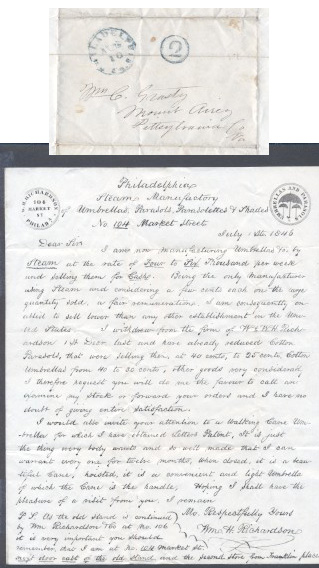 PHILADELPHIA
10
2
Wm C. Grasty
Mount Airy
Pittsylvania Co
Va
W.H. RICHARDSON
104
MARKET
ST
PHILADA
UMBRELLAS AND PARASOLS
Philadelphia
Steam Manufactory
of Umbrellas, Parasols, Parasolettes & Shades
No. 104 Market Street
July 1st, 1846
Dear Sir
I am now manufacturing Umbrellas &c. by
Steam at the rate of Four to Six Thousand per week
and selling them for Cash. Being the only manufacturer
using Steam and considering a few cents each on the large
quantity sold, a fair remuneration, I am consequently en-
abled to sell lower than any other establishment in the Uni-
ted States. I withdrew from the firm of W & W.H. Rich-
ardson 1st last and have already reduced Cotton
Parasols, that were selling then, at 40 cents, to 25 cents, Cotton
Umbrellas from 40 to 30 cents, other goods very considerably.
I therefore request you will do me the favour to call and
examine my Stock or forward your orders and I have no
doubt of giving entire satisfaction.
I would also invite your attention to a Walking Cane Um-
brella for which I have obtained Letters Patent, It is just
the thing every body wants and so well made that I can
warrant every one for twelve months, When closed, it is a beau-
tiful Cane; hoisted, it is a convenient and light Umbrella
of which the Cane is the handle, Hoping I shall have the
pleasure of a visit from you, I remain
Respectfully Yours
Wm. H. Richardson
P.S. As the old stand is continued
by Wm Richardson & Co at No. 106
it is very important you should
remember that I am at No. 104 Market St.
next door east of the old stand and the second store from Franklin place